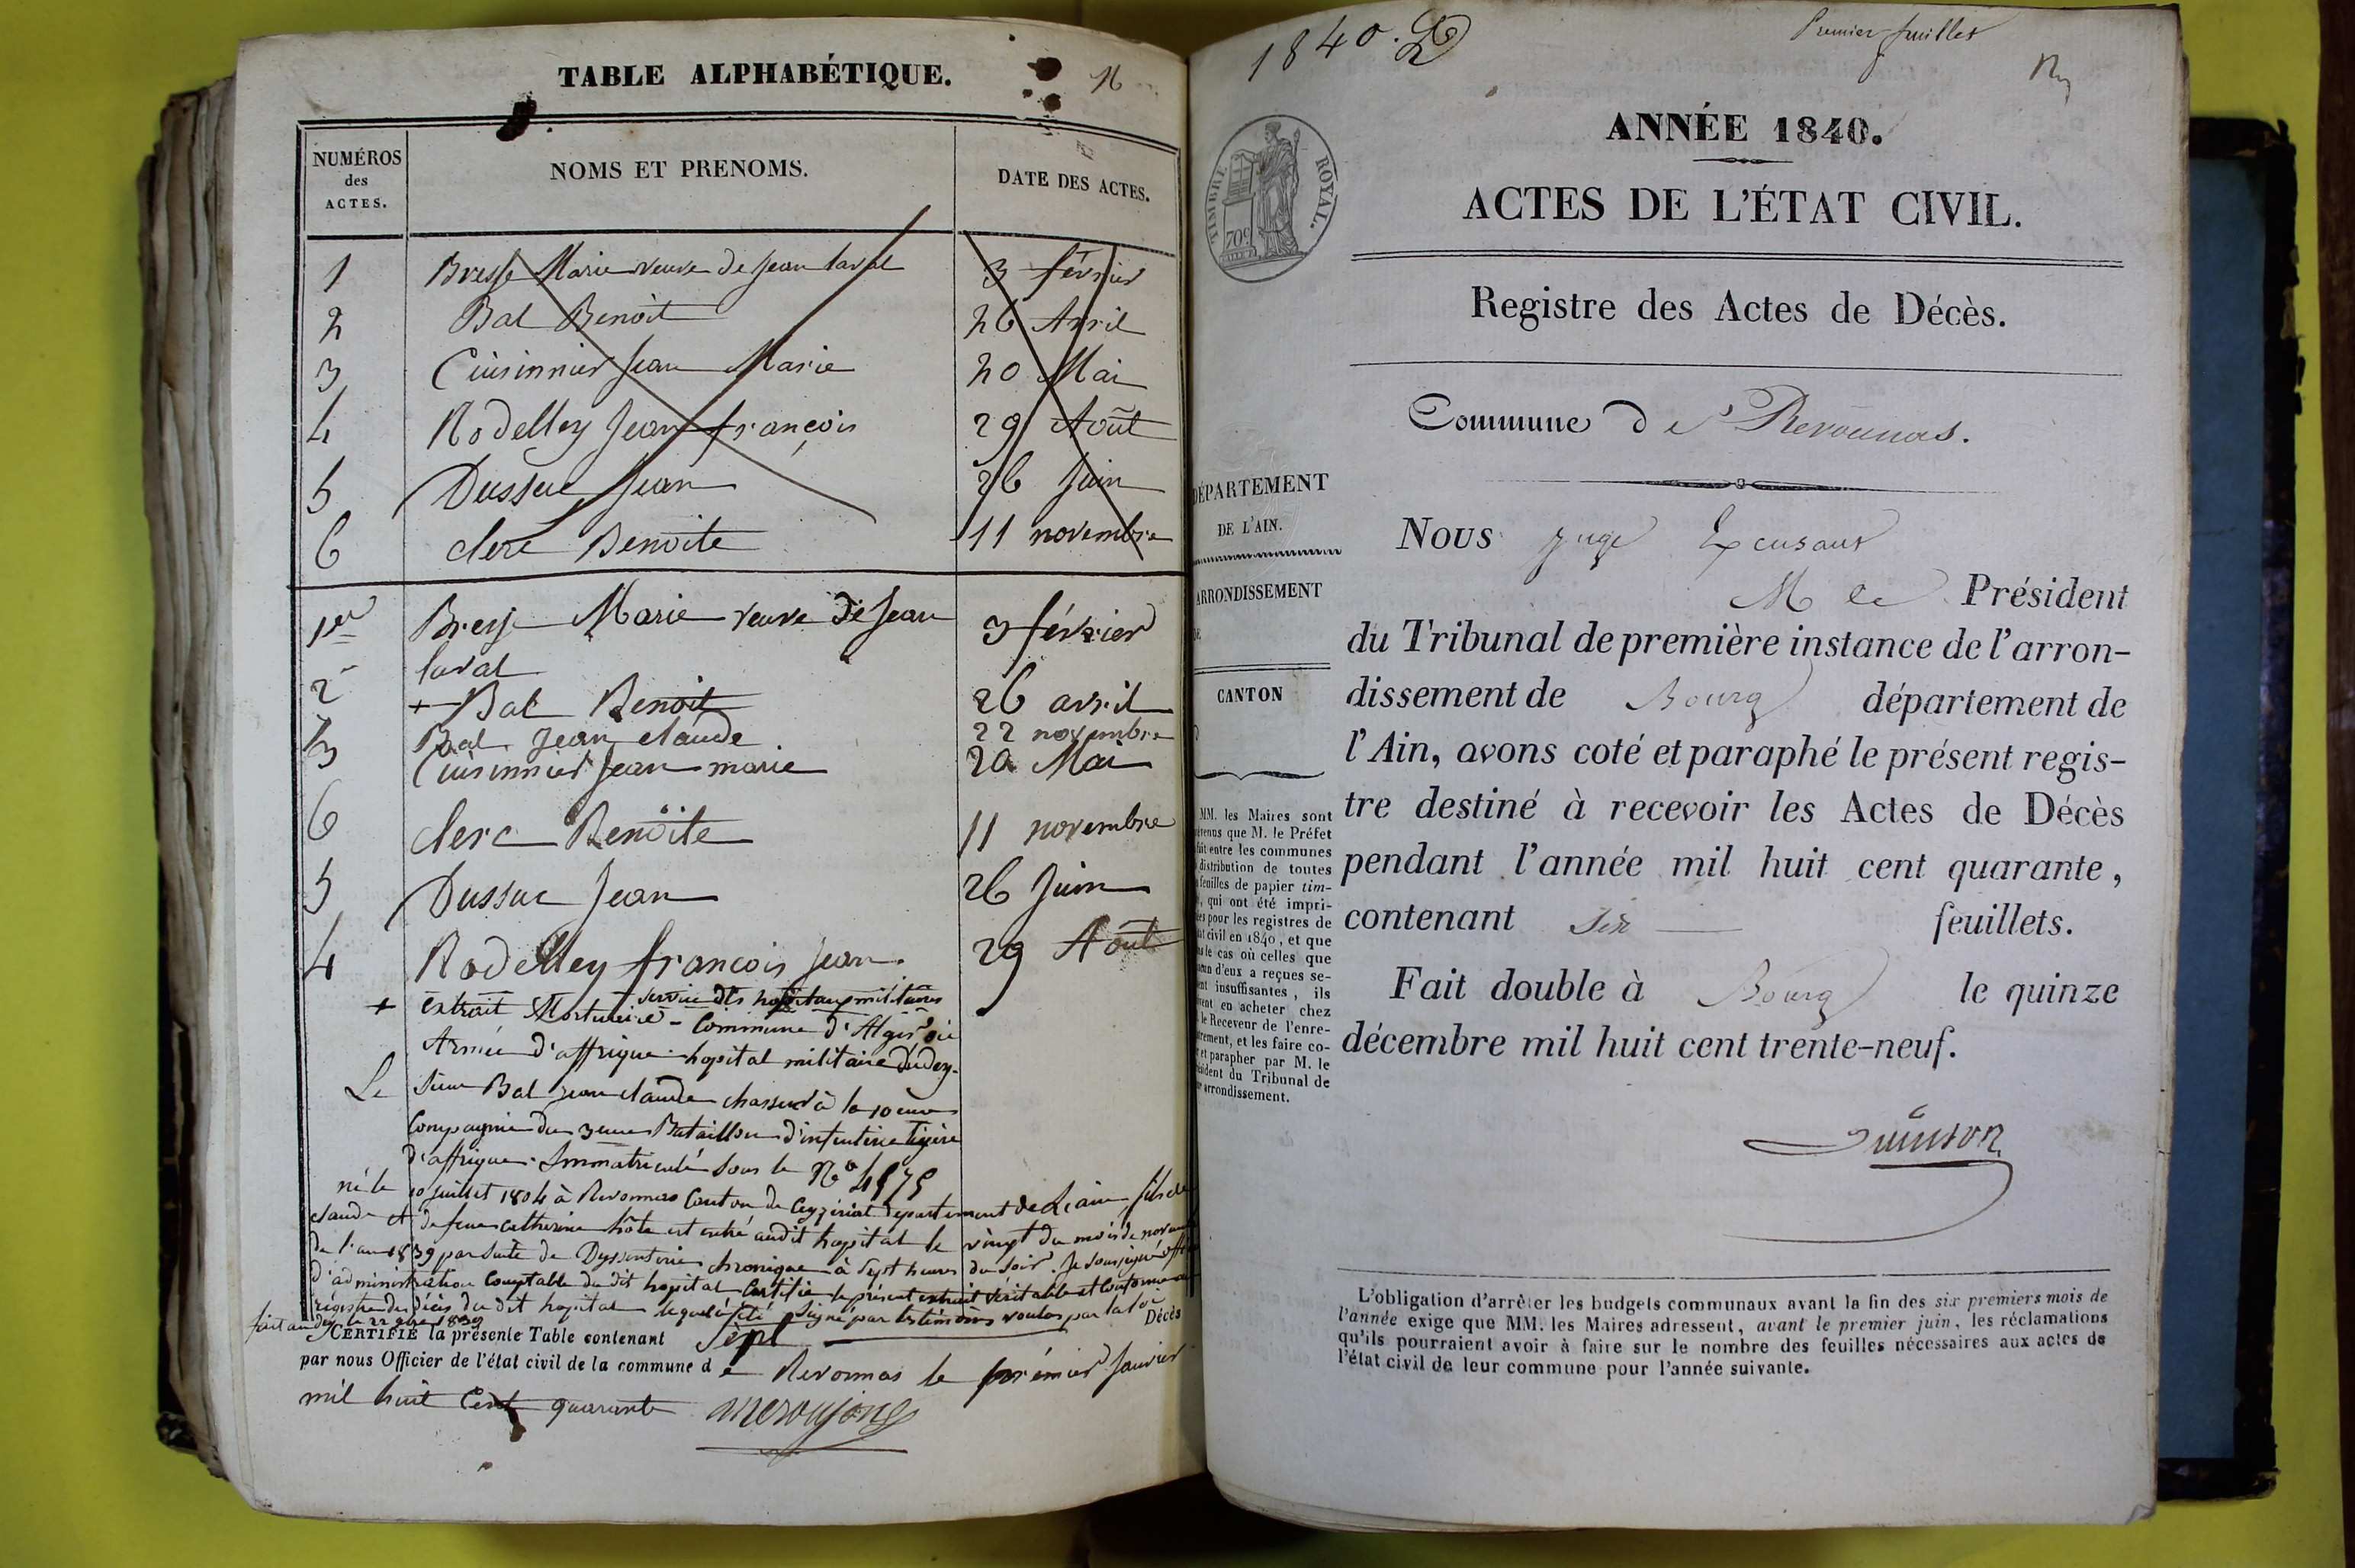 TABLE ALPHABÉTIQUE.
16
NUMÉROS des ACTES.
NOMS ET PRENOMS.
DATE DES ACTES.
1 Bresse Marie veuve de Jean laval 3 février
2 Bal Benoit 26 Avril
3 Cuisinnier Jean Marie 20 Mai
4 Rodelley Jean françois 29 Août
5 Dussuc Jean 26 Juin
6 clerc Benoite 11 novembre
1er Bresse Marie veuve de Jean 3 février
laval
2 + Bal Benoit 26 avril
7 Bal Jean claude 22 novembre
3 Cuisinnier Jean marie 20 Mai
6 clerc Benoite 11 novembre
5 Dussuc Jean 26 Juin
4 Rodelley françois Jean 29 Août
service des hopitaux militaires
+ extrait Mortuaire - Commune d'Alger
Armée d'affrique hopital militaire du dey.
Le Sieur Bal jean claude chasseur à la 10eme
Compagnie du 3eme Bataillon d'infanterie légère
d'affrique. Immatriculé sous le No 4575
né le 10 juillet 1804 à Revonnas Canton de Ceyzériat departement de L'ain, fils de
claude et de feue catherine hôte est entré audit hopital le vingt du mois de novem
de l'an 1839 par suite de Dyssenterie chronique à sept heures du soir. Je soussigné off
d'administration Comptable du dit hopital Certifie le présent extrait véritable et conforme au
régistre des décès du dit hopital lequel à été signé par les témoins voulus par la loi
fait au dey le 22 9bre 1839
CERTIFIÉ la présente Table contenant Sept Décès
par nous Officier de l'état civil de la commune d e Revonnas le prémier Janvier
mil huit Cent quarante
1840. D
Premier feuillet
ANNÉE 1840.
TIMBRE ROYAL.
70c
ACTES DE L'ÉTAT CIVIL.
Registre des Actes de Décès.
Commune de Revonnas.
DÉPARTEMENT
DE L'AIN.
ARRONDISSEMENT
DE
CANTON
D
MM. les Maires sont
que M. le Préfet
fait entre les communes
distribution de toutes
feuilles de papier tim-
qui ont été impri-
pour les registres de
civil en 1840, et que
le cas où celles que
d'eux a reçues se-
insuffisantes, ils
en acheter chez
le Receveur de l'enre-
et les faire co-
et parapher par M. le
du Tribunal de
arrondissement.
Nous juge Excusant
M le Président
du Tribunal de première instance de l'arron-
dissement de Bourg département de
l'Ain, avons coté et paraphé le présent regis-
tre destiné à recevoir les Actes de Décès
pendant l'année mil huit cent quarante,
contenant Six feuillets.
Fait double à Bourg le quinze
décembre mil huit cent trente-neuf.
L'obligation d'arrêter les budgets communaux avant la fin des six premiers mois de
l'année exige que MM. les Maires adressent, avant le premier juin, les réclamations
qu'ils pourraient avoir à faire sur le nombre des feuilles nécessaires aux actes de
l'état civil de leur commune pour l'année suivante.